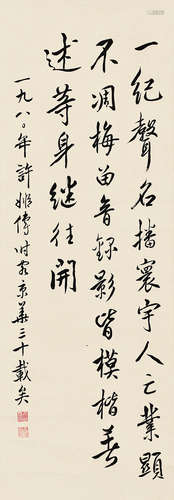 一紀聲名播寰宇人亡業顯
不凋梅留音錄影皆模楷著
述等身繼往開
一九八〇年許姬傳时客京華三十載矣